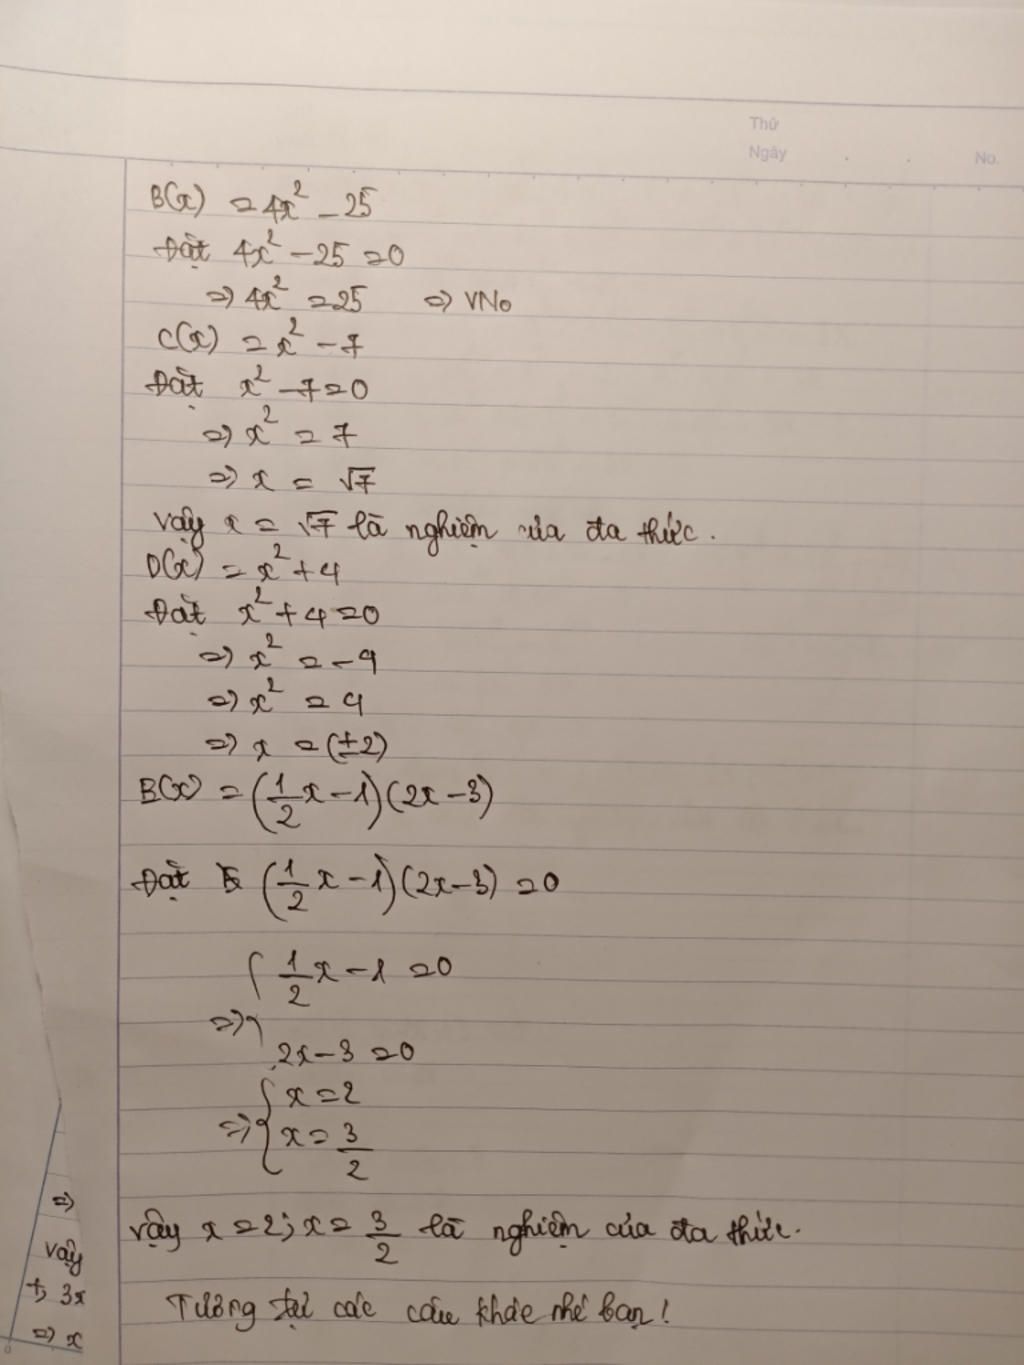 Thứ
Ngày . . No.
B(x) = 4x² - 25
Đặt 4x² - 25 = 0
=> 4x² = 25 => VNo
C(x) = x² - 7
Đặt x² - 7 = 0
=> x² = 7
=> x = √7
Vậy x = √7 là nghiệm của đa thức.
D(x) = x² + 4
Đặt x² + 4 = 0
=> x² = -4
=> x² = 4
=> x = (±2)
E(x) = (1/2 x - 1)(2x - 3)
Đặt (1/2 x - 1)(2x - 3) = 0
=> { 1/2 x - 1 = 0
2x - 3 = 0
=> { x = 2
x = 3/2
Vậy x = 2; x = 3/2 là nghiệm của đa thức.
Tương tự các câu khác nhé bạn!
=>
Vậy
+, 3x
=> x